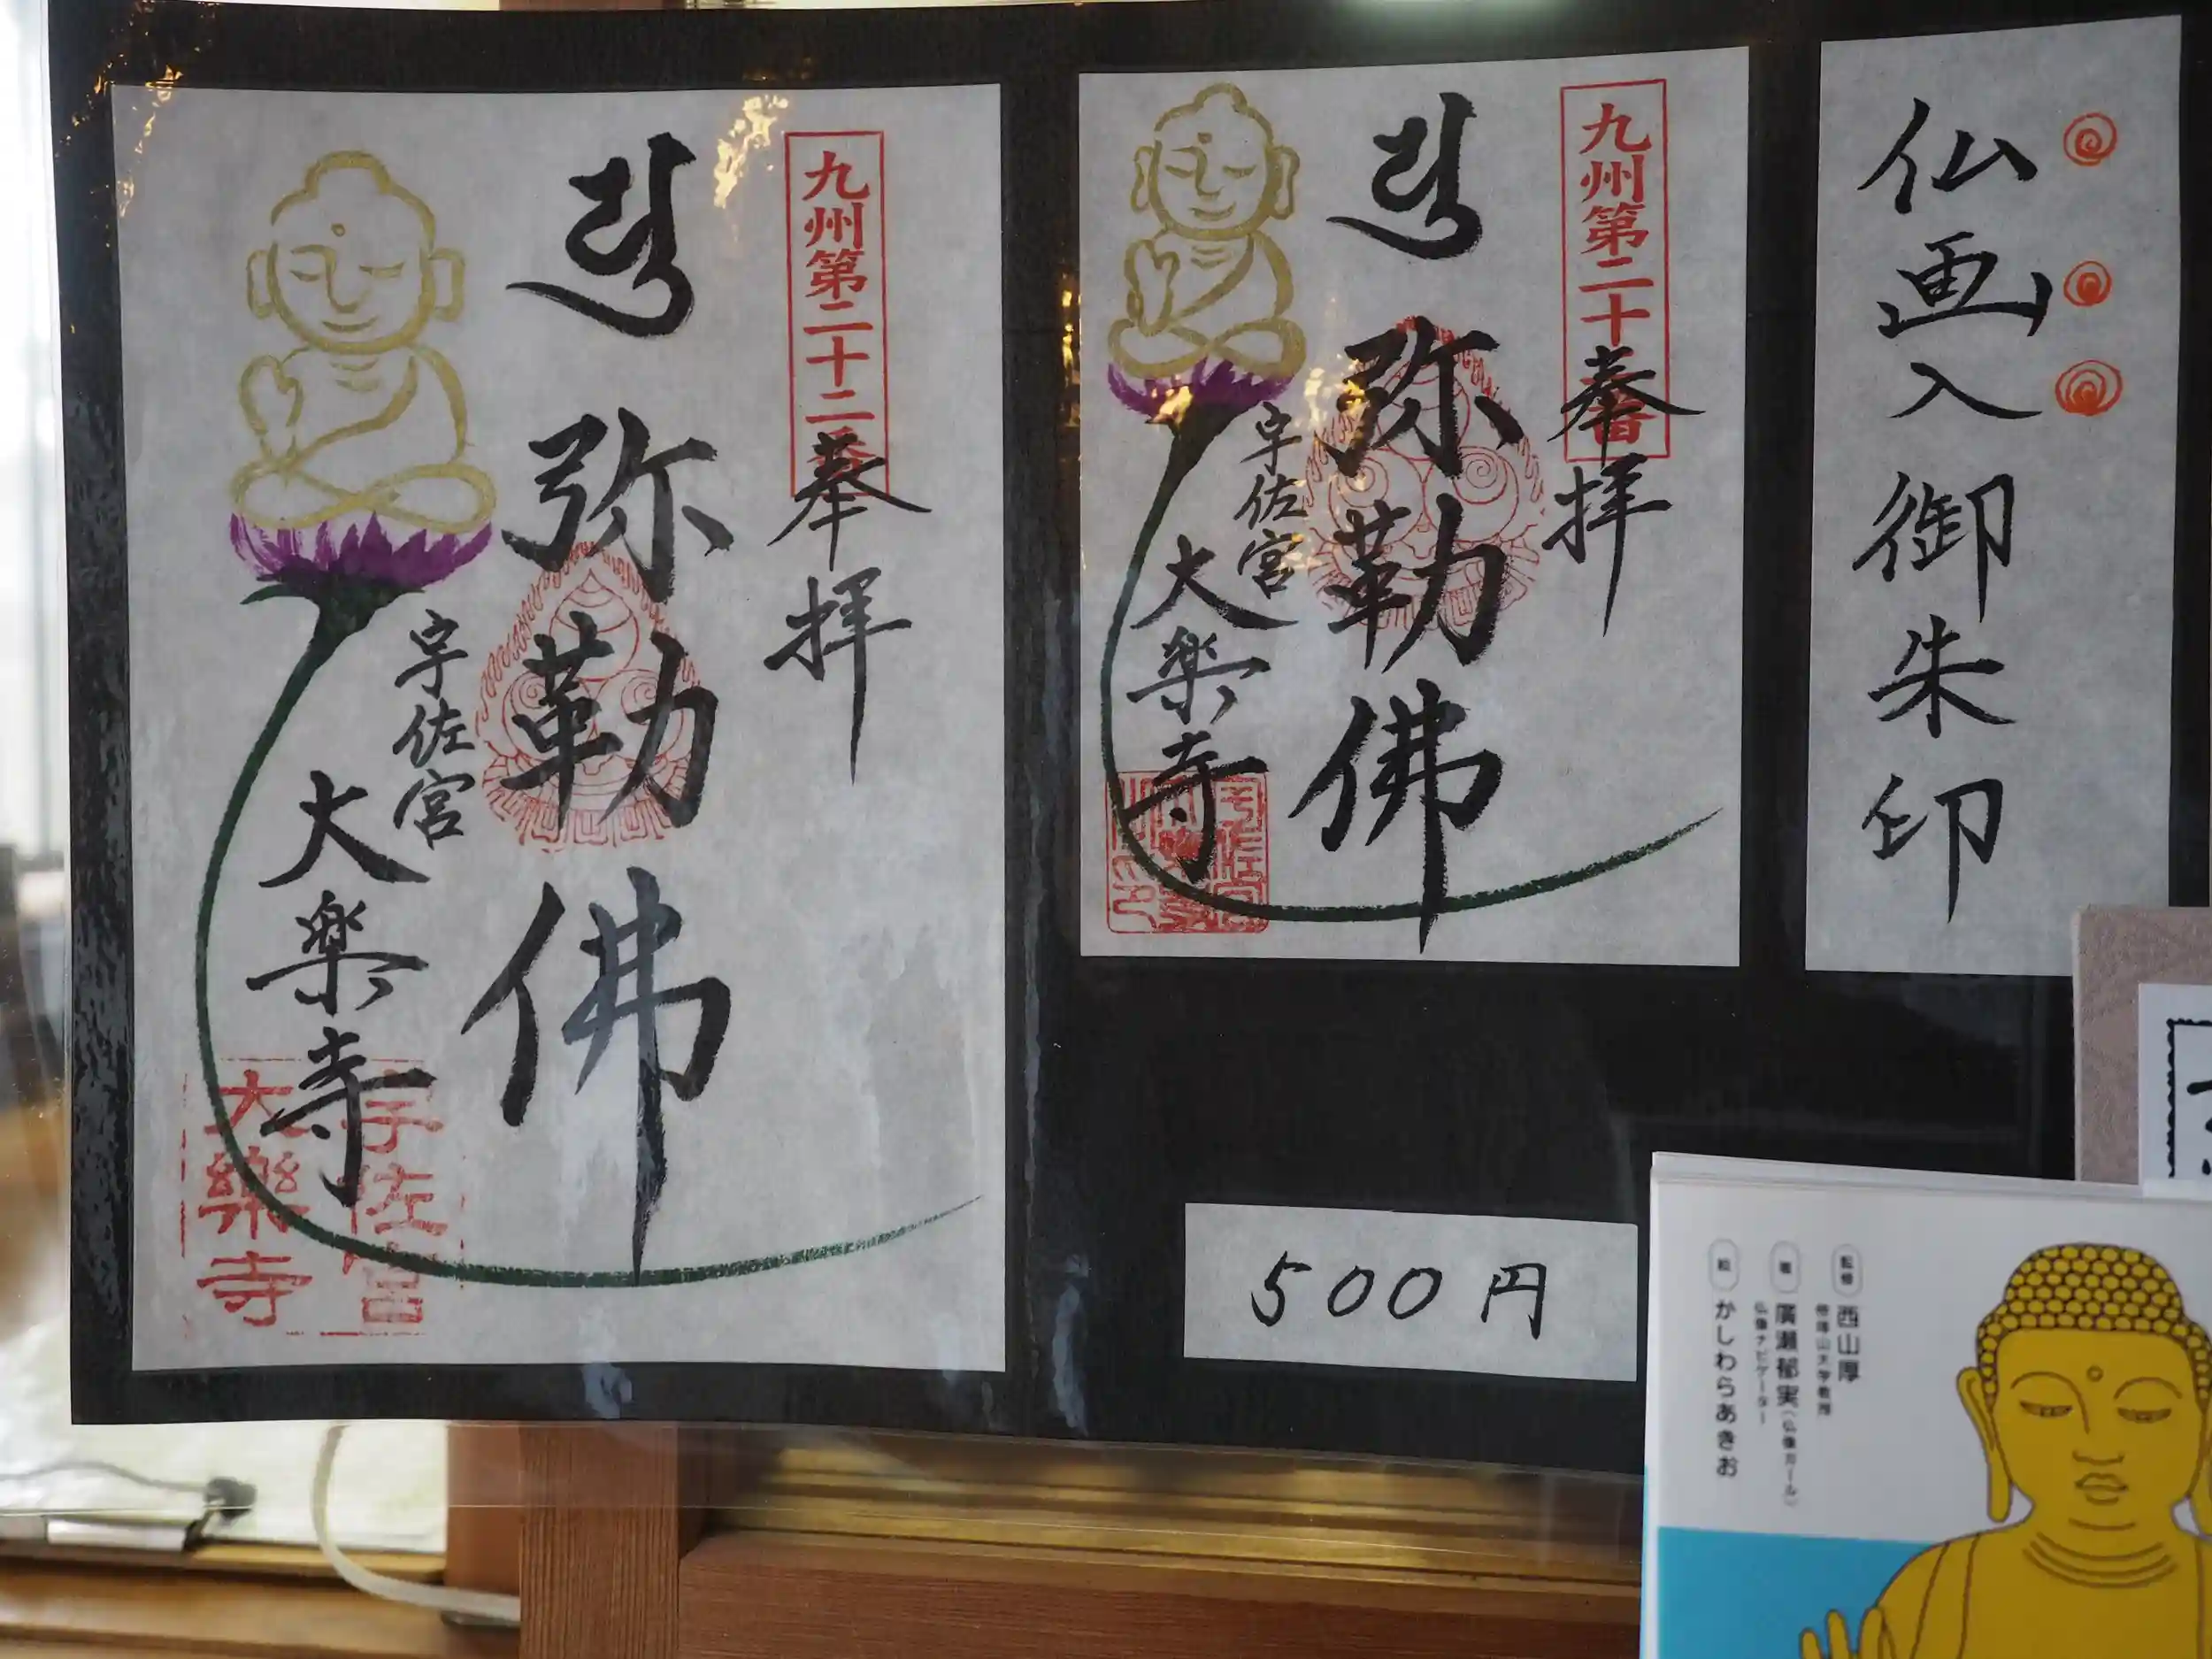 仏画入御朱印
九州第二十
奉拝
弥勒佛
宇佐宮
大楽寺
九州第二十二番
奉拝
弥勒佛
宇佐宮
大楽寺
宇佐宮
大樂寺
500円
監修 西山厚
帝塚山大学教授
著 廣瀬郁実(仏像ガール)
仏像ナビゲーター
絵 かしわらあきお